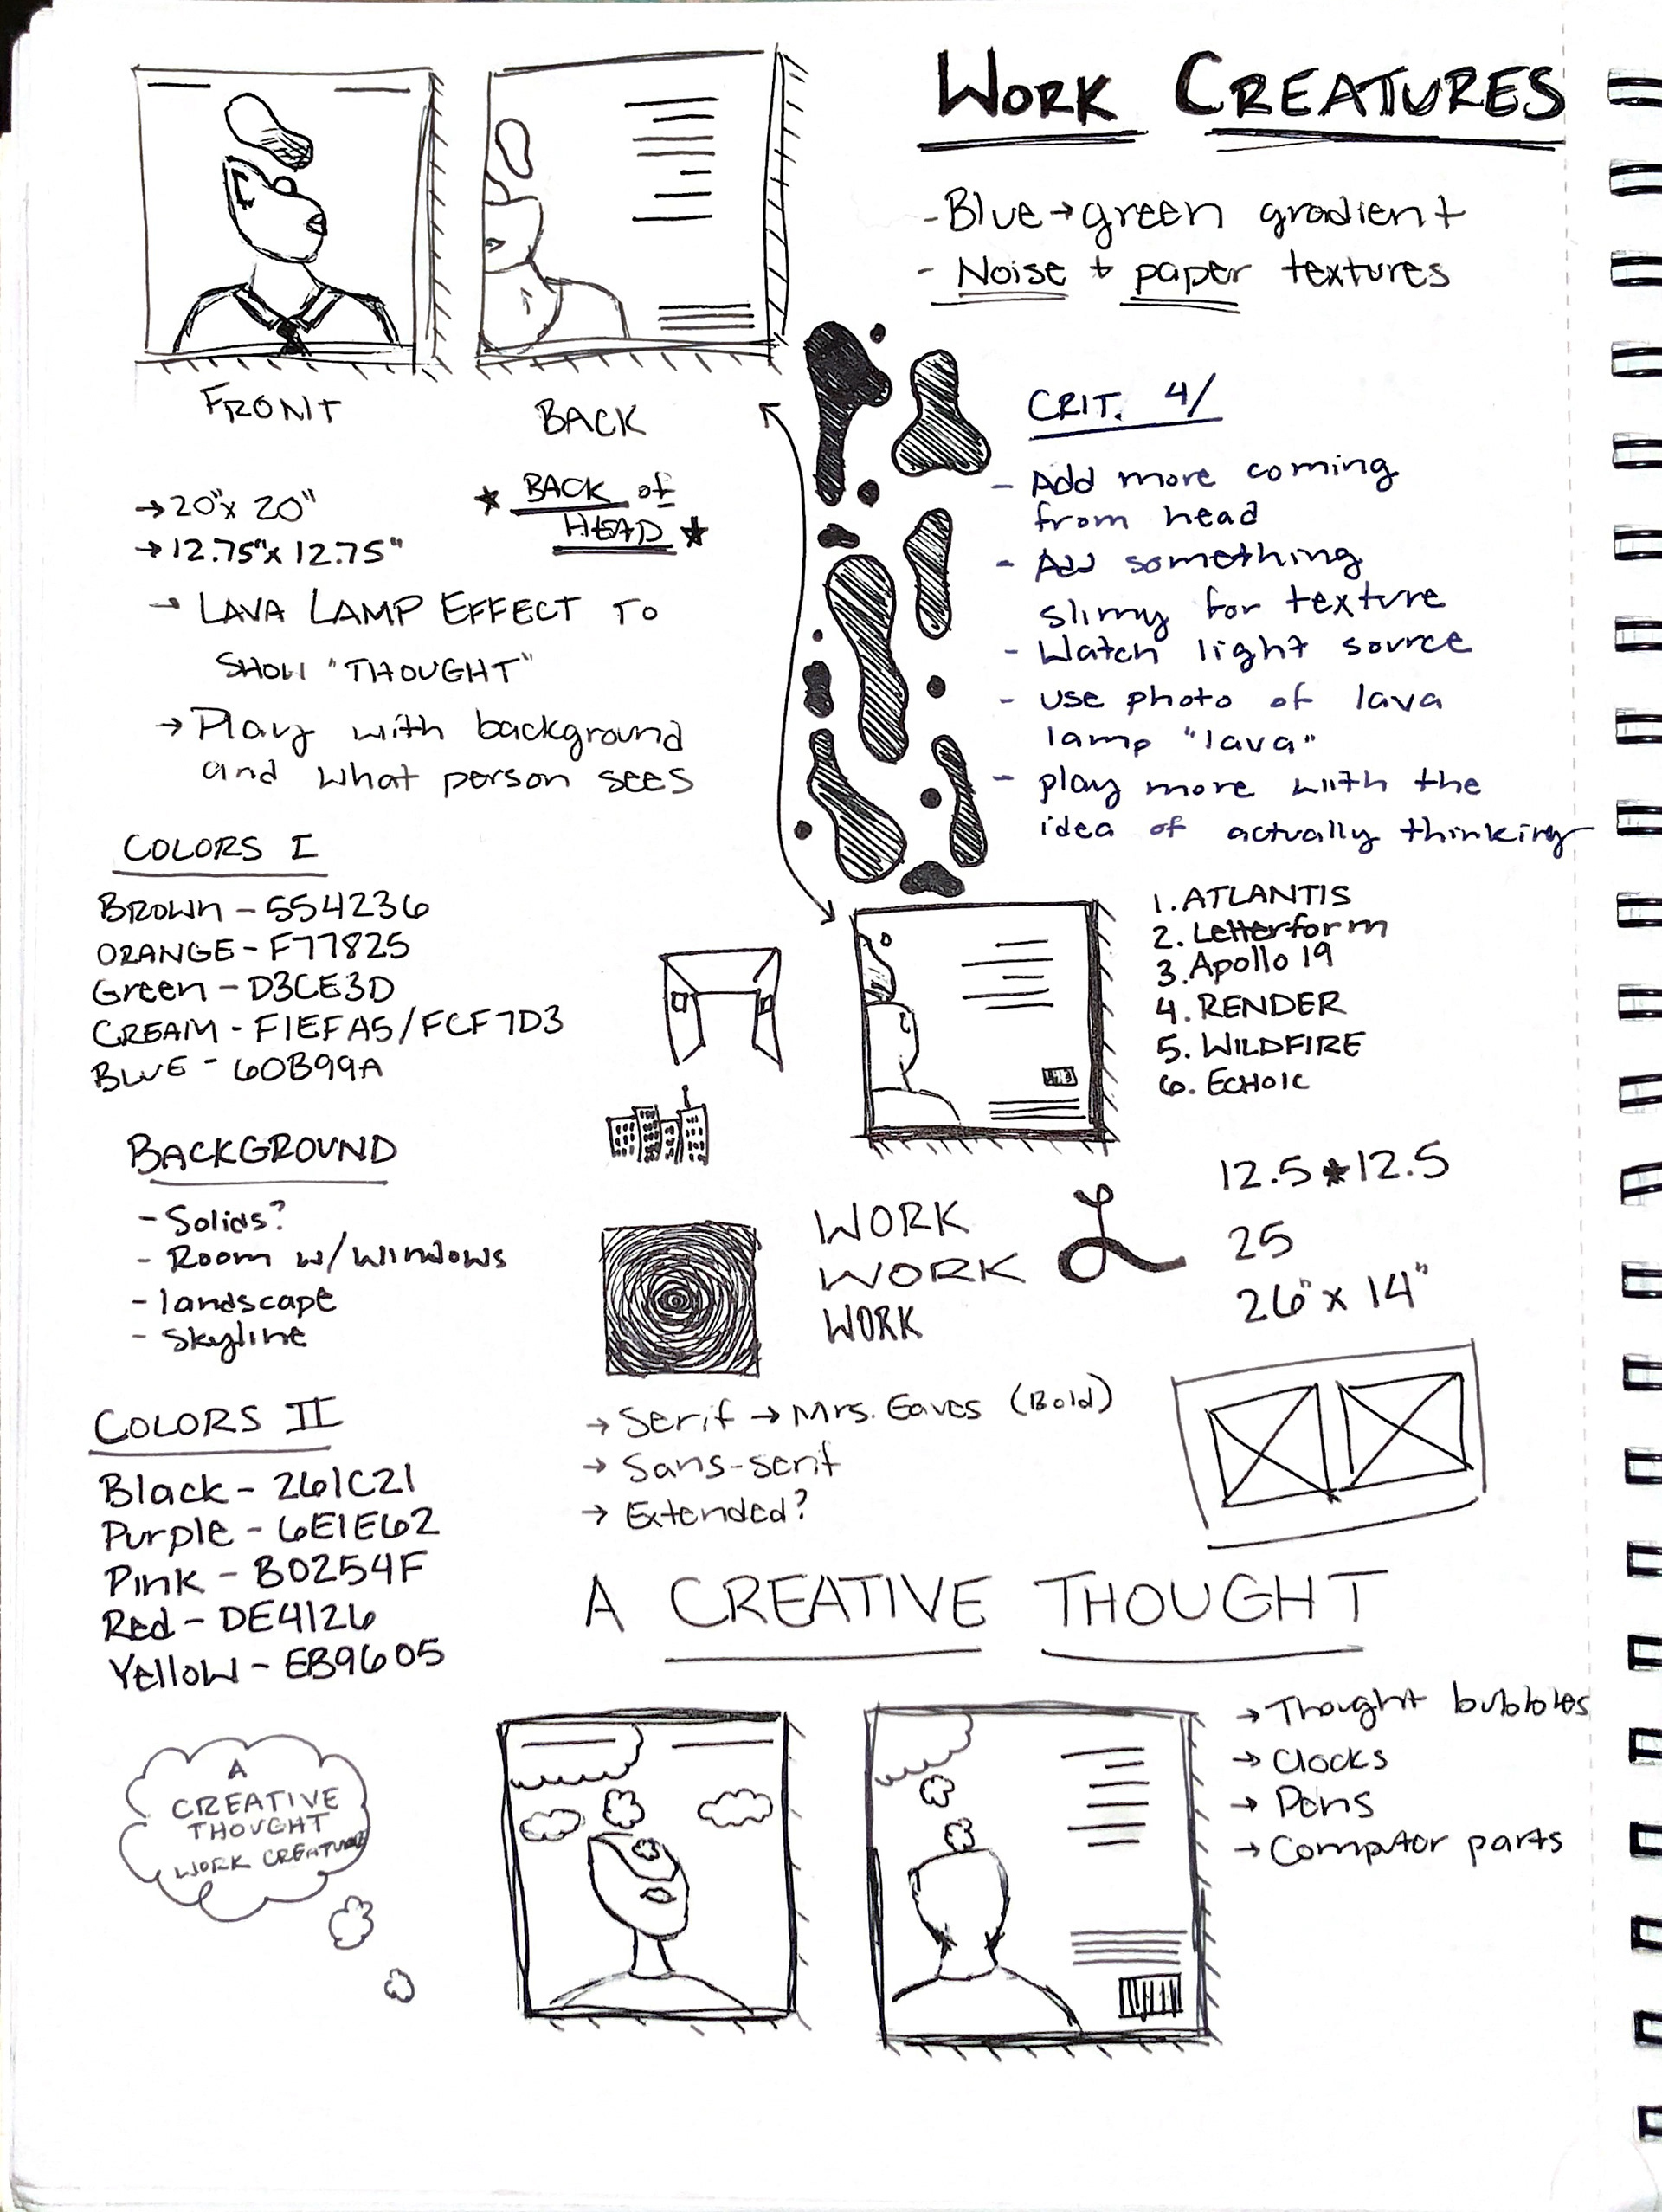 WORK CREATURES
- Blue → green gradient
- Noise + paper textures
FRONT
BACK
→ 20" x 20"
→ 12.75" x 12.75"
→ LAVA LAMP EFFECT TO
SHOW "THOUGHT"
→ Play with background
and what person sees
★ BACK of
HEAD ★
CRIT. 4/
- Add more coming
from head
- Add something
slimy for texture
- Watch light source
- use photo of lava
lamp "lava"
- play more with the
idea of actually thinking
COLORS I
BROWN - 554236
ORANGE - F77825
Green - D3CE3D
CREAM - F1EFA5/FCF7D3
BLUE - 60B99A
1. ATLANTIS
2. Letterform
3. Apollo 19
4. RENDER
5. WILDFIRE
6. ECHOIC
BACKGROUND
- Solids?
- Room w/windows
- landscape
- Skyline
WORK
WORK
WORK
L
12.5 * 12.5
25
26" x 14"
COLORS II
Black - 261C21
Purple - 6E1E62
Pink - B0254F
Red - DE4126
Yellow - EB9605
→ Serif → Mrs. Eaves (Bold)
→ Sans-serif
→ Extended?
A CREATIVE THOUGHT
A
CREATIVE
THOUGHT
WORK CREATURE
→ Thought bubbles
→ Clocks
→ Pens
→ Computer parts